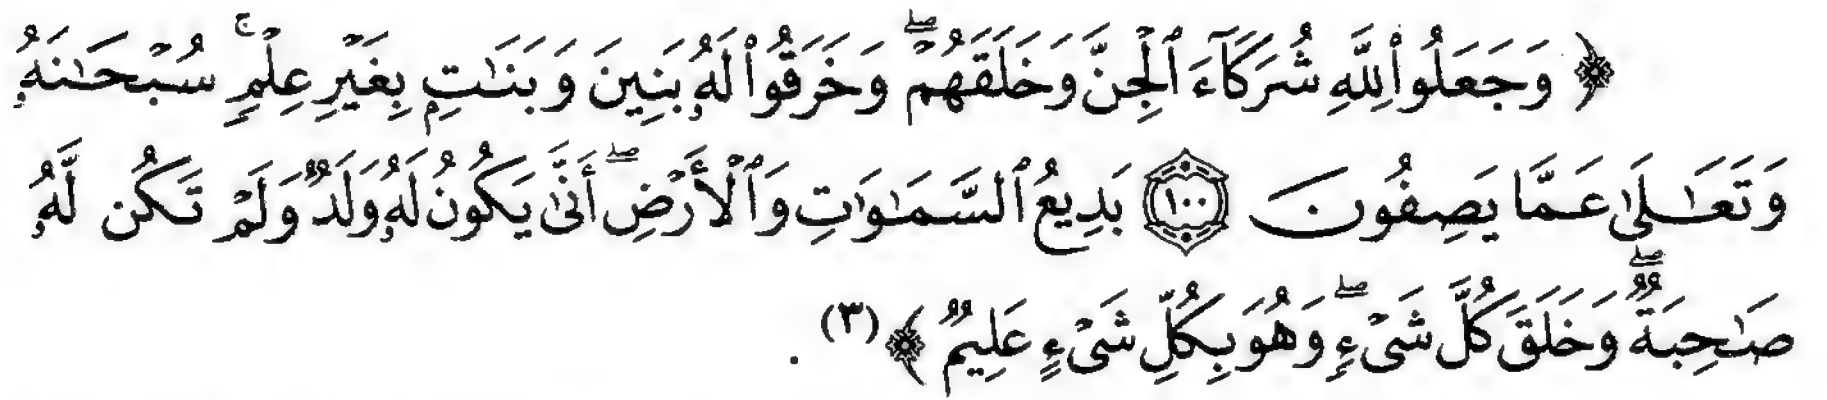 ﴿ وَجَعَلُوا۟ لِلَّهِ شُرَكَآءَ ٱلْجِنَّ وَخَلَقَهُمْ ۖ وَخَرَقُوا۟ لَهُۥ بَنِينَ وَبَنَـٰتٍۭ بِغَيْرِ عِلْمٍ ۚ سُبْحَـٰنَهُۥ
وَتَعَـٰلَىٰ عَمَّا يَصِفُونَ ﴿١٠٠﴾ بَدِيعُ ٱلسَّمَـٰوَٰتِ وَٱلْأَرْضِ ۖ أَنَّىٰ يَكُونُ لَهُۥ وَلَدٌ وَلَمْ تَكُن لَّهُۥ
صَـٰحِبَةٌ ۖ وَخَلَقَ كُلَّ شَىْءٍ ۖ وَهُوَ بِكُلِّ شَىْءٍ عَلِيمٌ ﴾ (٣) .